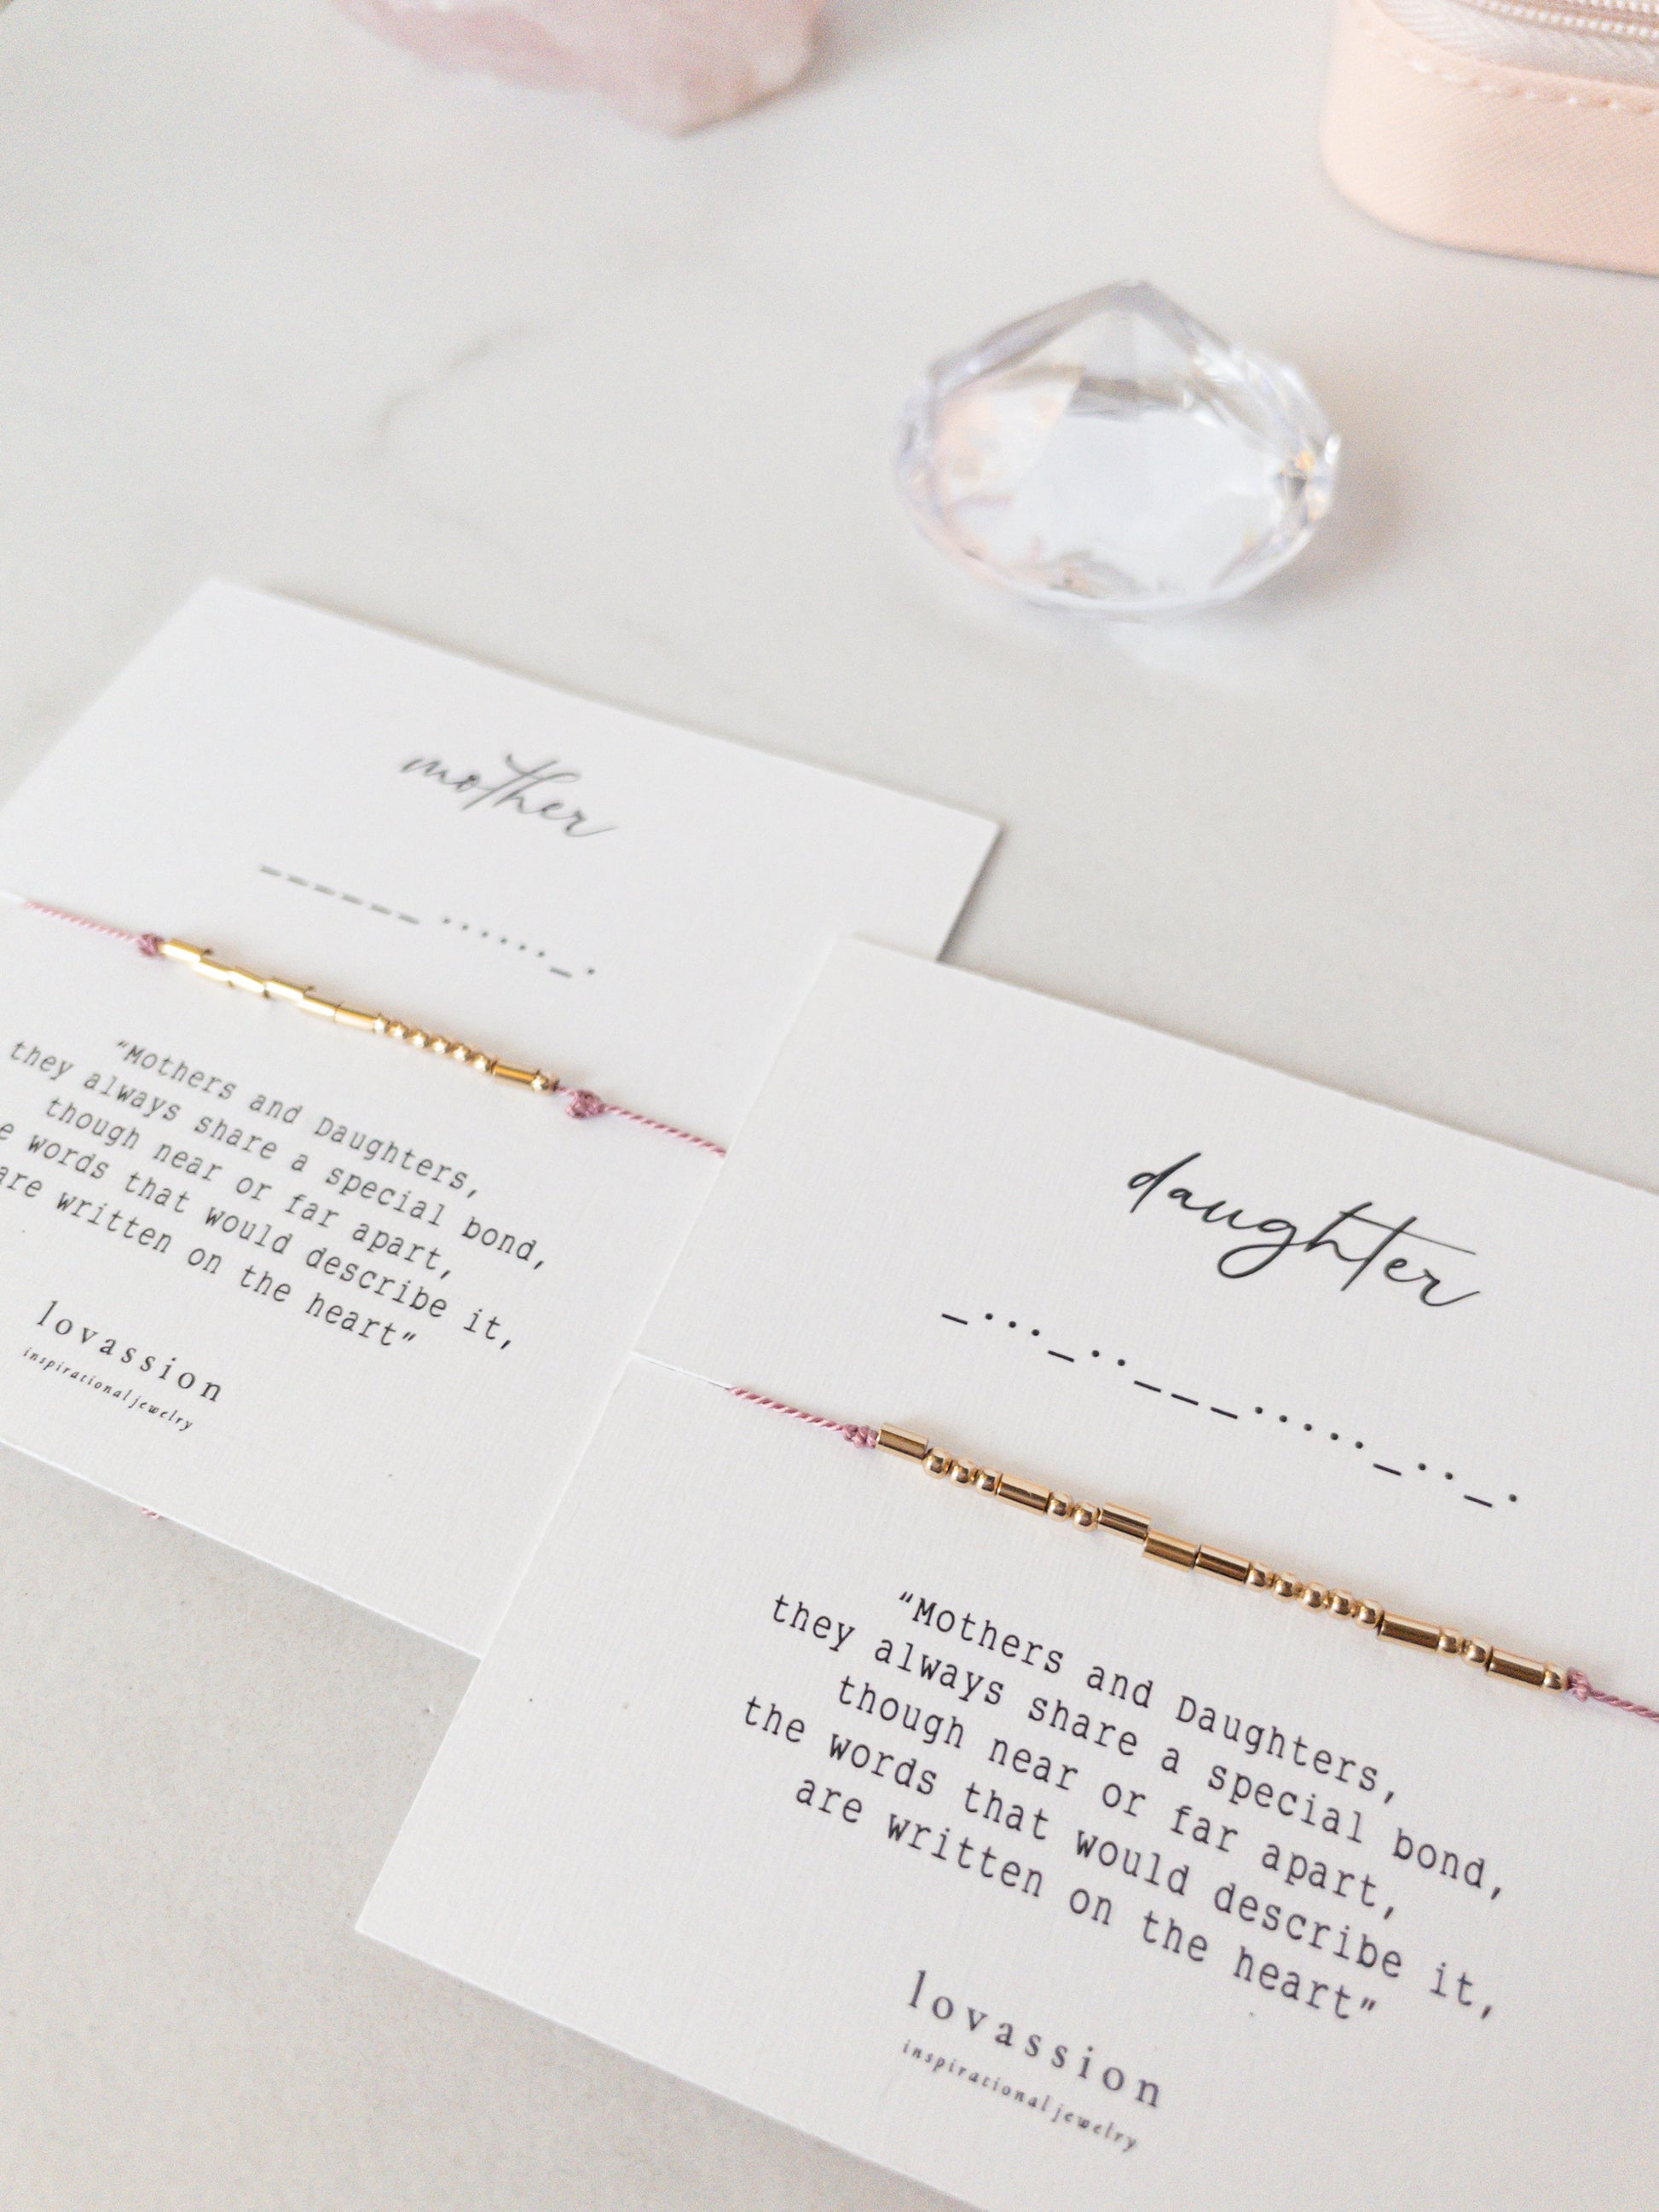 mother
______......_.
"Mothers and Daughters,
they always share a special bond,
though near or far apart,
e words that would describe it,
are written on the heart"
lovassion
inspirational jewelry
daughter
_..._..___....._.._.
"Mothers and Daughters,
they always share a special bond,
though near or far apart,
the words that would describe it,
are written on the heart"
lovassion
inspirational jewelry